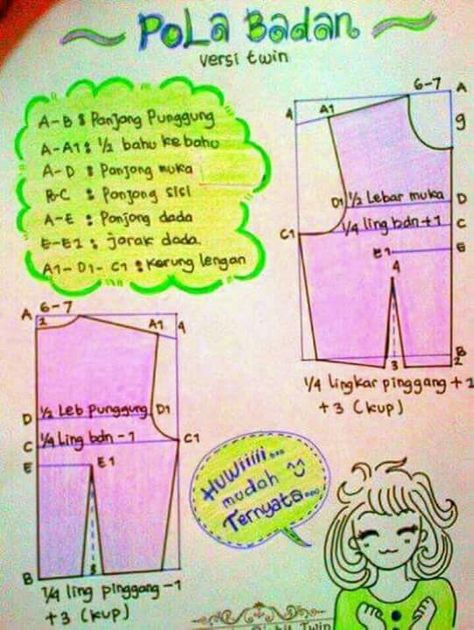 PoLa Badan
versi twin
A-B : Panjang Punggung
A-A1 : ½ bahu kebahu
A-D : Panjang muka
B-C : Panjang sisi
A-E : Panjang dada
E-E1 : jarak dada
A1-D1-C1 : Kerung lengan
6-7
A
A1
4
9
D1
½ Lebar muka
D
C1
¼ ling bdn+1
C
E1
E
4
3
B
2
¼ lingkar pinggang +1
+3 (kup)
6-7
A
2
A1
4
D
½ Leb punggung
D1
C
¼ Ling bdn -1
C1
E
E1
B
3
¼ ling pinggang -1
+3 (kup)
HUWIIIII...
mudah
Ternyata...
Twin